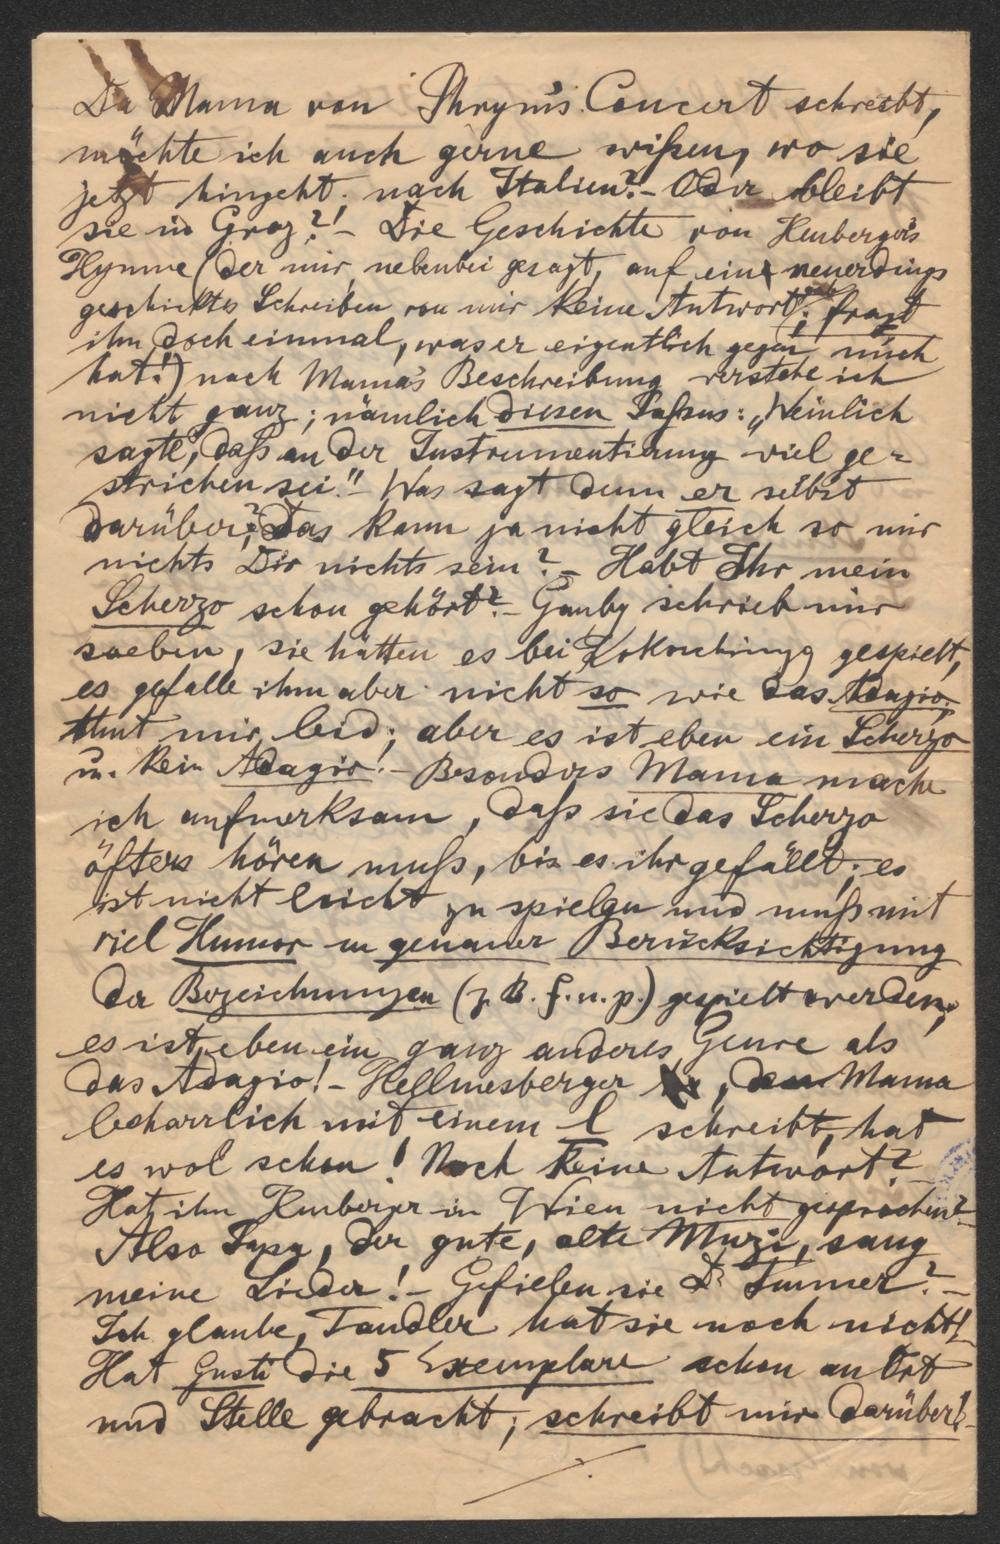 Da Mama von Phryms Concert schreibt,
möchte ich auch gerne wißen, wo sie
jetzt hingeht. nach Italien?- Oder bleibt
sie in Graz?!- Die Geschichte von Heuberger's
Hymne (der mir, nebenbei gesagt, auf ein neuerdings
geschicktes Schreiben von mir keine Antwort; fragt
ihn doch einmal, was er eigentlich gegen mich
hat!) nach Mama's Beschreibung verstehe ich
nicht ganz; nämlich diesen Paßus: „Weinlich
sagte, daß an der Instrumentierung viel ge=
strichen sei."- Was sagt denn er selbst
darüber? Das kann ja nicht gleich so mir
nichts Dir nichts sein?- Habt Ihr mein
Scherzo schon gehört?- Gauby schrieb mir
soeben, sie hätten es bei gespielt,
es gefalle ihm aber nicht so wie das Adagio;
thut mir leid; aber es ist eben ein Scherzo
u. kein Adagio!- Besonders Mama mache
ich aufmerksam, daß sie das Scherzo
öfters hören muß, bis es ihr gefällt; es
ist nicht leicht zu spielen und muß mit
viel Humor u genauer Berücksichtigung
der Bezeichnungen (z. B. f. u. p.) gespielt werden;
es ist eben ein ganz anderes Genre als
das Adagio!- Hellmesberger , den Mama
beharrlich mit einem l schreibt, hat
es wol schon! Noch keine Antwort?-
Hat ihn Heuberger in Wien nicht gesprochen?-
Also Papa, der gute, alte Muzi, sang
meine Lieder!- Gefielen sie Dr
Ich glaube, Tandler hat sie noch nicht!
Hat Gusti die 5 Exemplare schon an Ort
und Stelle gebracht; schreibt mir darüber!-